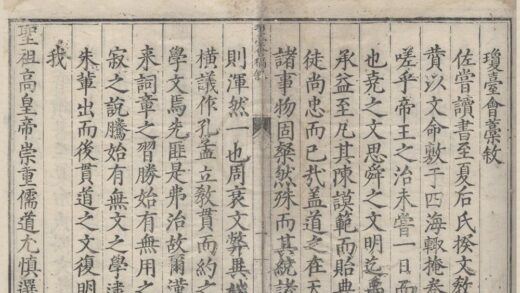 瓊臺會藁敘
佐嘗讀書至夏后氏揆文教
賁以文命敷于四海輒掩卷
嗟乎帝王之治未嘗一日而
也堯之文思舜之文明迄
承益至凡其陳謨範而貽典
徒尚忠而已哉蓋道之在天
諸事物固粲然殊而其統諸
則渾然一也周衰文弊異
橫議作孔孟立教貫而約
學文焉先匪是弗治故爾漢
来詞章之習勝始有無用之
寂之說騰始有無文之學
朱輩出而後貫道之文復明
我
聖祖高皇帝崇重儒道尤慎選